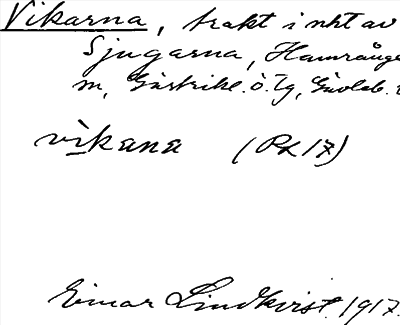 Vikarna, trakt i nht av
Sjugarna, Hamrånge
sn, Gästrikl. ö. tg, Gävleb.
vìkana (PK 17)
Einar Lindkvist 1917.